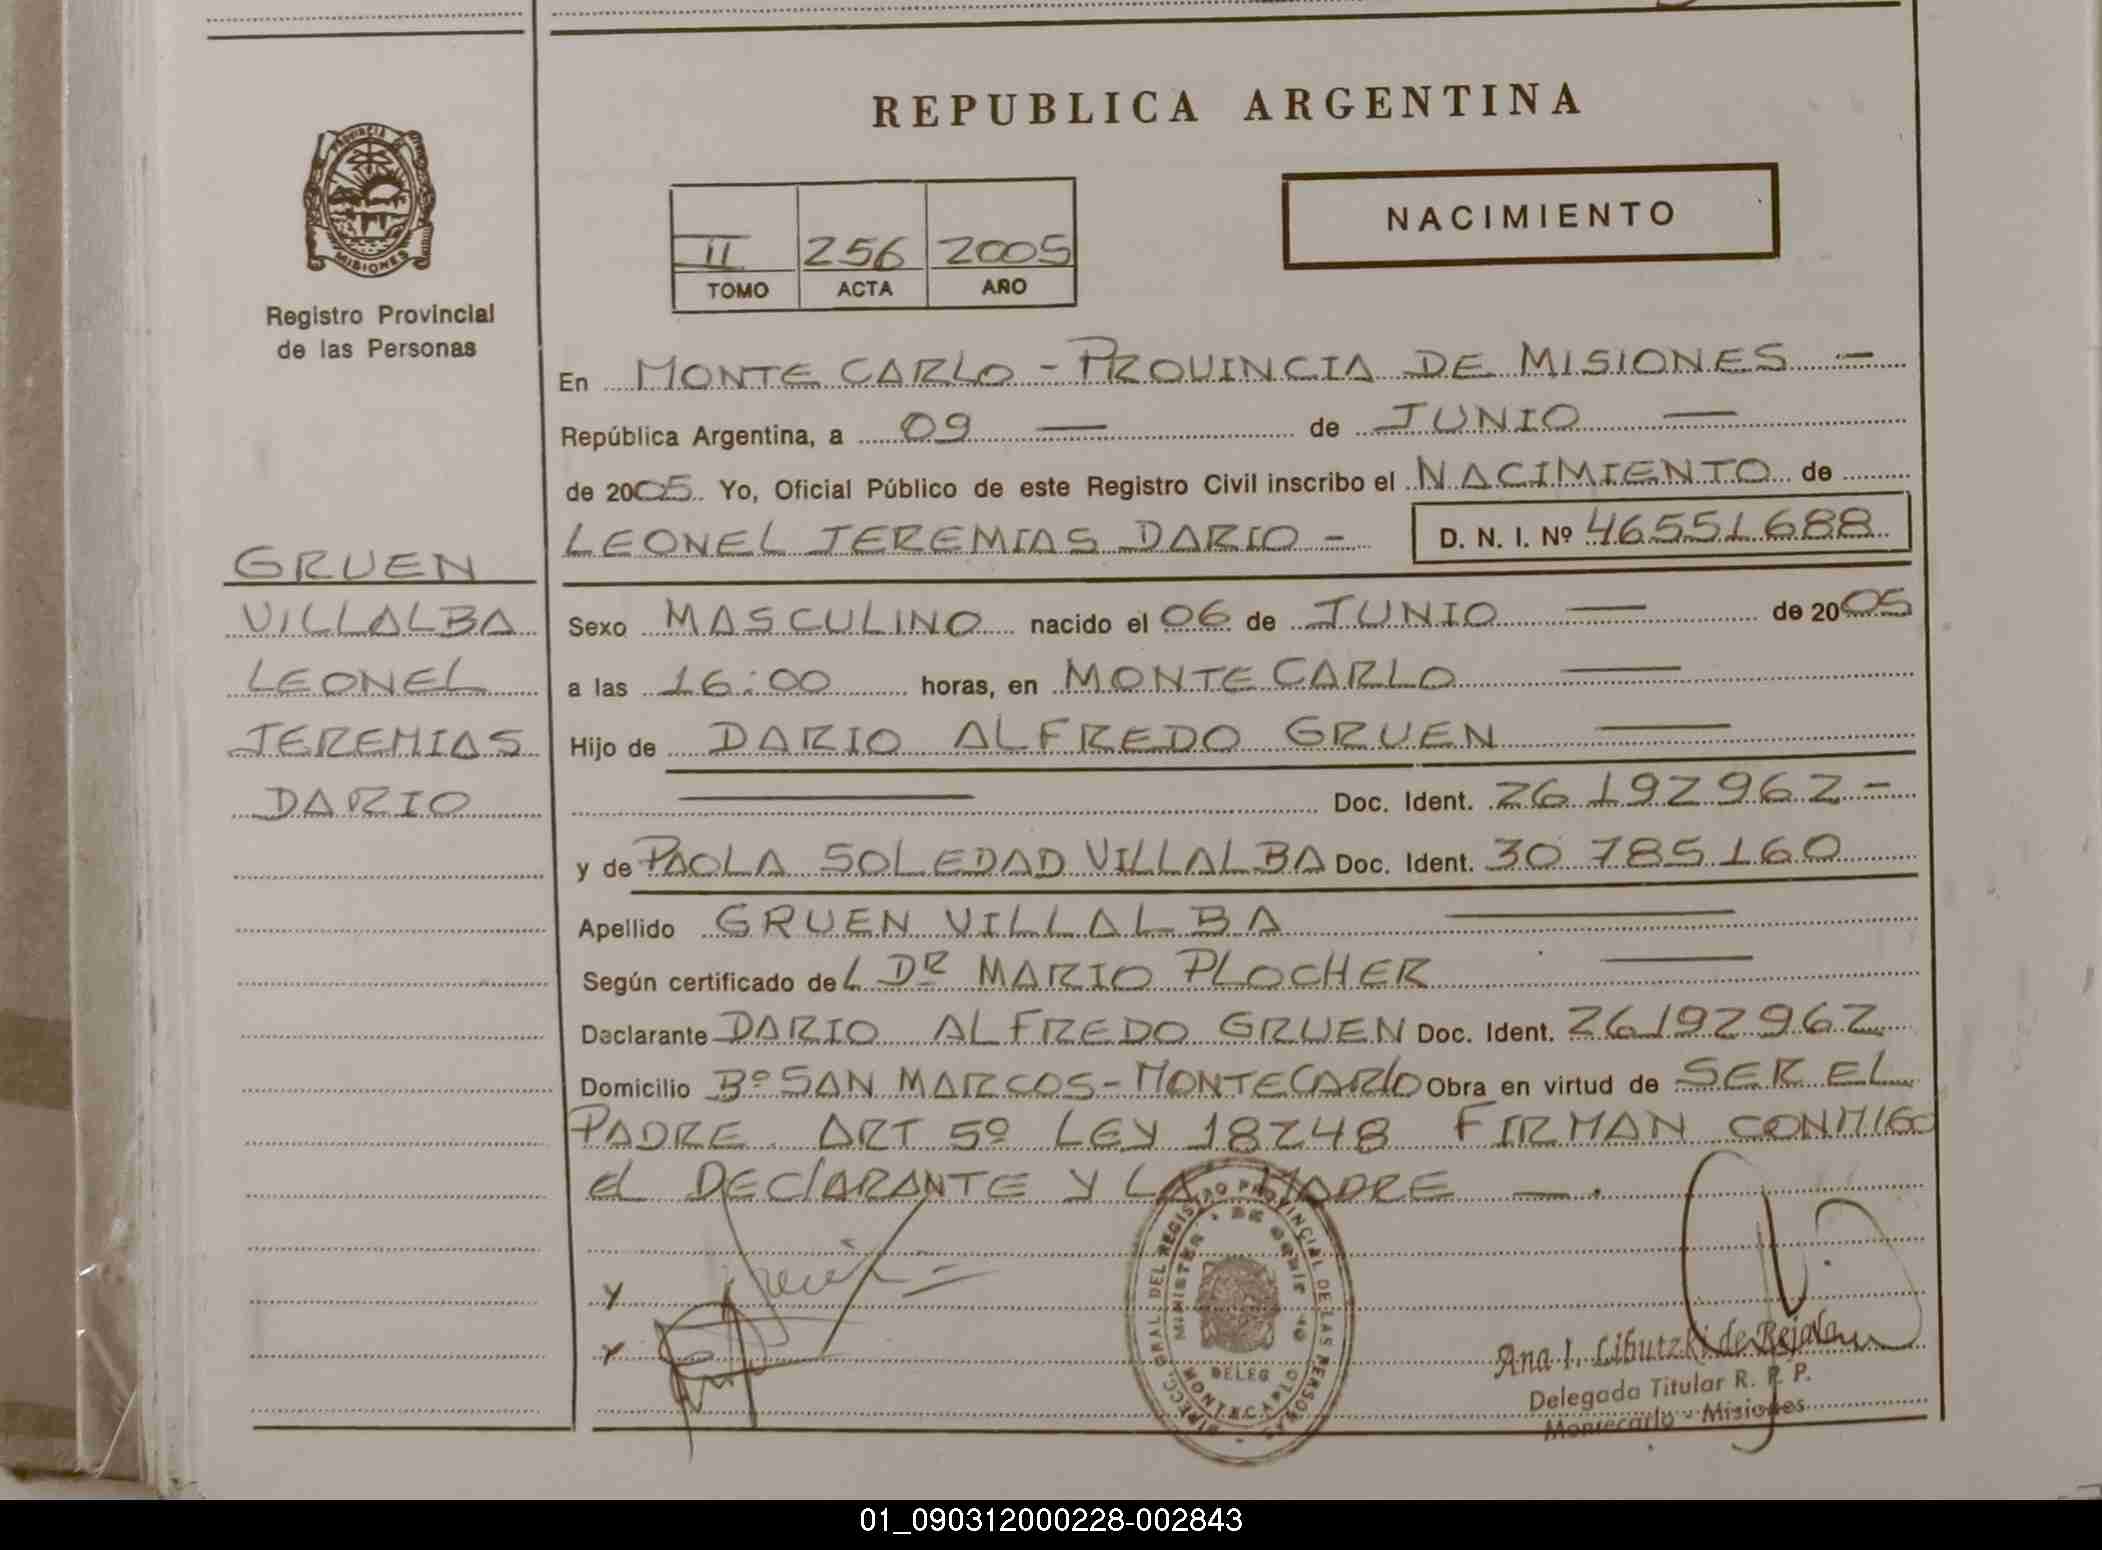 REPUBLICA ARGENTINA
PROVINCIA DE
MISIONES
Registro Provincial
de las Personas
NACIMIENTO
II 256 2005
TOMO ACTA AÑO
En MONTE CARLO - PROVINCIA DE MISIONES -
República Argentina, a 09 — de JUNIO —
de 2005 Yo, Oficial Público de este Registro Civil inscribo el NACIMIENTO de
LEONEL JEREMIAS DARIO - D. N. I. Nº 46551688
GRUEN
VILLALBA
LEONEL
JEREMIAS
DARIO
Sexo MASCULINO nacido el 06 de JUNIO — de 2005
a las 16:00 horas, en MONTE CARLO —
Hijo de DARIO ALFREDO GRUEN —
— Doc. Ident. 26192962 -
y de PAOLA SOLEDAD VILLALBA Doc. Ident. 30785160
Apellido GRUEN VILLALBA —
Según certificado de L DR MARIO PLOCHER —
Daclarante DARIO ALFREDO GRUEN Doc. Ident. 26192962
Domicilio Bº SAN MARCOS - MONTECARlO Obra en virtud de SER EL
PADRE. ART 5º LEY 18248 FIRMAN CONMIGO
el DEClARANTE Y LA MADRE — .
DIRECC. GRAL. DEL REGISTRO PROVINCIAL DE LAS PERSONAS
DELEG
MONTECARLO
Ana I. Libutzki de Rejala
Delegada Titular R. P. P.
Montecarlo - Misiones
01_090312000228-002843